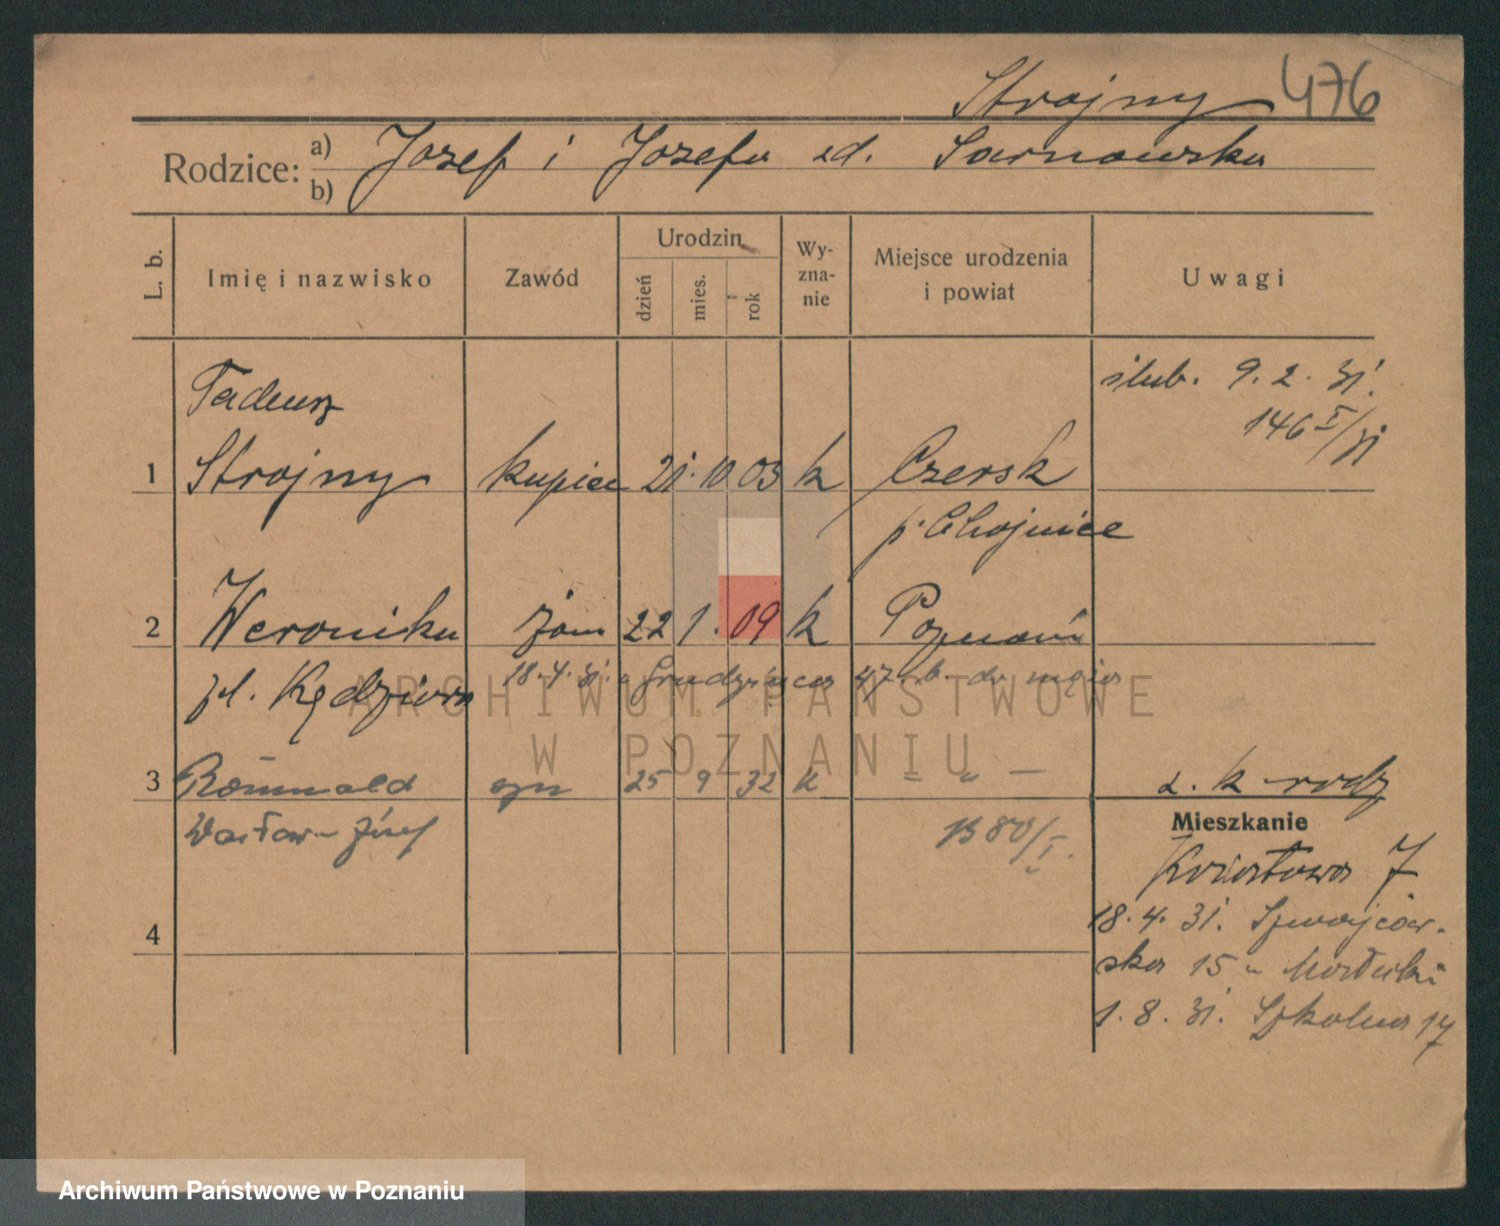 Strojny 476
Rodzice: a) b) Józef i Józefa zd. Sarnowska
L. b. Imię i nazwisko Zawód Urodzin dzień mies. rok Wy-zna-nie Miejsce urodzenia i powiat Uwagi
ślub. 9. 2. 31.
146 I/31
Tadeusz
1 Strojny kupiec 21. 10 03 k Czersk
p. Chojnice
2 Weronika żona 22 1. 09 k Poznań
zd. Kędziora 18. 4. 31. z Grudzieńca 47. b. do męża
3 Romuald syn 25 9 32 k – " – z. k. rodz
Wacław Józef 1380/I.
Mieszkanie
Kwiatowa 7
4 18. 4. 31. Szwajcar-
ska 15 u Matuski
1. 8. 31. Szkolna 17
ARCHIWUM PAŃSTWOWE
W POZNANIU
Archiwum Państwowe w Poznaniu